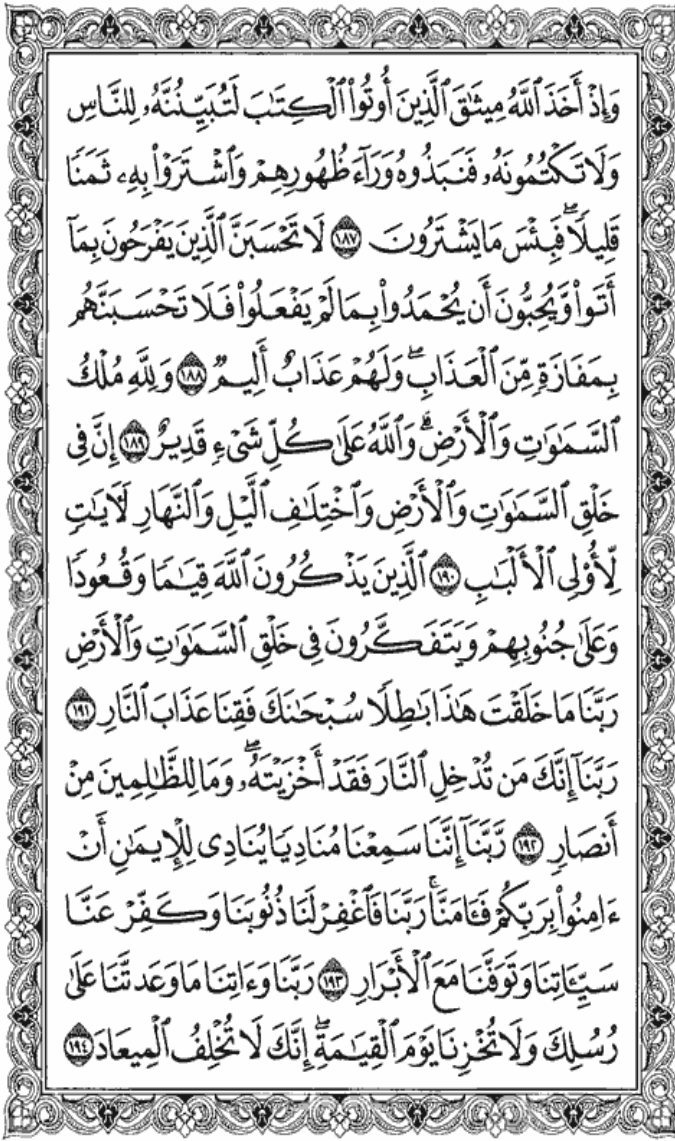 وَإِذْ أَخَذَ ٱللَّهُ مِيثَٰقَ ٱلَّذِينَ أُوتُوا۟ ٱلْكِتَٰبَ لَتُبَيِّنُنَّهُۥ لِلنَّاسِ
وَلَا تَكْتُمُونَهُۥ فَنَبَذُوهُ وَرَآءَ ظُهُورِهِمْ وَٱشْتَرَوْا۟ بِهِۦ ثَمَنًا
قَلِيلًا ۖ فَبِئْسَ مَا يَشْتَرُونَ ١٨٧ لَا تَحْسَبَنَّ ٱلَّذِينَ يَفْرَحُونَ بِمَآ
أَتَوا۟ وَّيُحِبُّونَ أَن يُحْمَدُوا۟ بِمَا لَمْ يَفْعَلُوا۟ فَلَا تَحْسَبَنَّهُم
بِمَفَازَةٍ مِّنَ ٱلْعَذَابِ ۖ وَلَهُمْ عَذَابٌ أَلِيمٌ ١٨٨ وَلِلَّهِ مُلْكُ
ٱلسَّمَٰوَٰتِ وَٱلْأَرْضِ ۗ وَٱللَّهُ عَلَىٰ كُلِّ شَىْءٍ قَدِيرٌ ١٨٩ إِنَّ فِى
خَلْقِ ٱلسَّمَٰوَٰتِ وَٱلْأَرْضِ وَٱخْتِلَٰفِ ٱلَّيْلِ وَٱلنَّهَارِ لَءَايَٰتٍ
لِّأُو۟لِى ٱلْأَلْبَٰبِ ١٩٠ ٱلَّذِينَ يَذْكُرُونَ ٱللَّهَ قِيَٰمًا وَقُعُودًا
وَعَلَىٰ جُنُوبِهِمْ وَيَتَفَكَّرُونَ فِى خَلْقِ ٱلسَّمَٰوَٰتِ وَٱلْأَرْضِ
رَبَّنَا مَا خَلَقْتَ هَٰذَا بَٰطِلًا سُبْحَٰنَكَ فَقِنَا عَذَابَ ٱلنَّارِ ١٩١
رَبَّنَآ إِنَّكَ مَن تُدْخِلِ ٱلنَّارَ فَقَدْ أَخْزَيْتَهُۥ ۖ وَمَا لِلظَّٰلِمِينَ مِنْ
أَنصَارٍ ١٩٢ رَّبَّنَآ إِنَّنَا سَمِعْنَا مُنَادِيًا يُنَادِى لِلْإِيمَٰنِ أَنْ
ءَامِنُوا۟ بِرَبِّكُمْ فَـَٔامَنَّا ۚ رَبَّنَا فَٱغْفِرْ لَنَا ذُنُوبَنَا وَكَفِّرْ عَنَّا
سَيِّـَٔاتِنَا وَتَوَفَّنَا مَعَ ٱلْأَبْرَارِ ١٩٣ رَبَّنَا وَءَاتِنَا مَا وَعَدتَّنَا عَلَىٰ
رُسُلِكَ وَلَا تُخْزِنَا يَوْمَ ٱلْقِيَٰمَةِ ۖ إِنَّكَ لَا تُخْلِفُ ٱلْمِيعَادَ ١٩٤